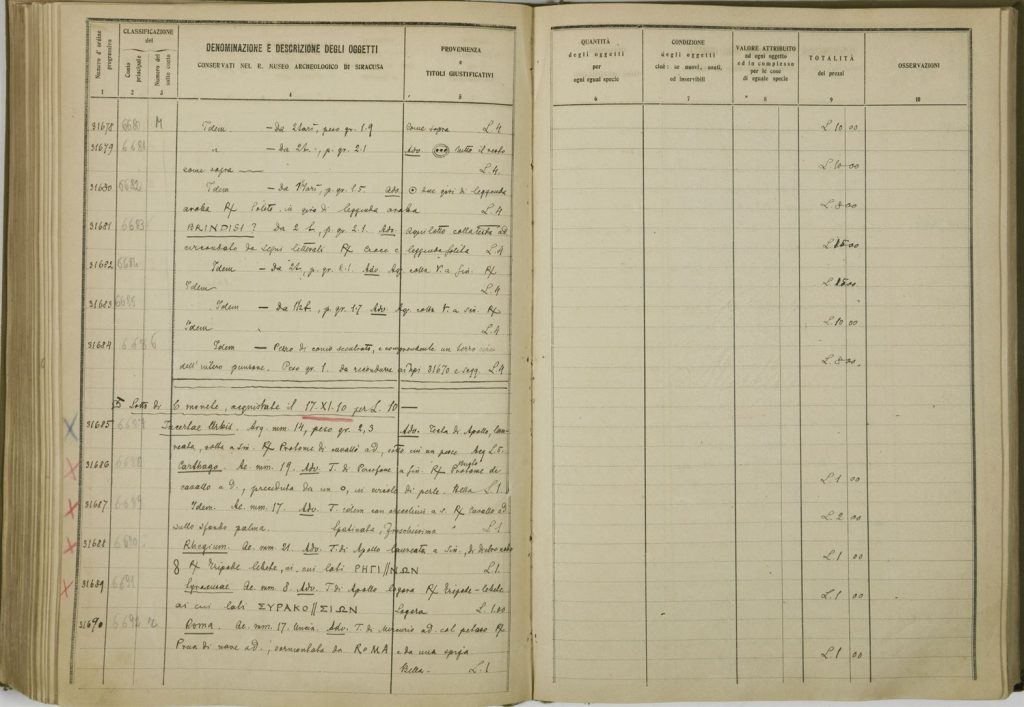 Numero d'ordine progressivo
CLASSIFICAZIONE del
Conto principale
Numero del sotto conto
DENOMINAZIONE E DESCRIZIONE DEGLI OGGETTI
CONSERVATI NEL R. MUSEO ARCHEOLOGICO DI SIRACUSA
PROVENIENZA
e
TITOLI GIUSTIFICATIVI
QUANTITÀ
degli oggetti
per
ogni egual specie
CONDIZIONE
degli oggetti
cioè: se nuovi, usati,
od inservibili
VALORE ATTRIBUITO
ad ogni oggetto
ed in complesso
per le cose
di eguale specie
TOTALITÀ
dei prezzi
OSSERVAZIONI
1 2 3 4 5 6 7 8 9 10
31678 6680 M Idem — Da 2 tarì, peso gr. 1.9 Come sopra L. 4 L. 10 00
31679 6681 " — Da 2 t., p. gr. 2.1 Adv. tutto il resto
come sopra L. 4. L. 10 00
31680 6682 Idem — Da tarì, p. gr. 1.5. Adv. due giri di leggenda
araba Rx Solito in giro di leggenda araba L. 4 L. 8 00
31681 6683 BRINDISI? Da 2 t., p. gr. 2.1. Adv. aquilotto colla testa a d.
circondato da segni letterali Rx Croce e leggenda solita L. 4 L. 15 00
31682 6684 Idem — Da 2 t., p. gr. Adv. Aq. colla t. a sin. Rx
Idem L. 4. L. 15 00
31683 6685 Idem — Da t. p. gr. 1.7 Adv. Aq. colla t. a sin. Rx
Idem L. 4 L. 10 00
31684 Idem — Pezzo di conio scentrato, e comprendente un terzo circa
dell'intero punzone. Peso gr. 1. da ricondurre ai tipi 31670 e segg. L. 4 L. 8 00
Lotto di 6 monete, acquistate il 17. XI. 10 per L. 10 —
31685 6687 Incertae Urbis. Arg. mm. 14, peso gr. 2,3 Adv. Testa di Apollo, lau-
reata, volta a sin. Rx Protome di cavallo a d., sotto cui un pesce Arg L. 5.
31686 6688 Carthago. Ae. mm. 19. Adv. T. di Persefone a sin. Rx Protome di
cavallo a d., preceduta da un o, in circolo di perle. Bella L. 1. L. 1 00
31687 6689 Idem. Ae. mm. 17. Adv. T. idem con orecchini a s. Rx Cavallo a d.
sullo sfondo palma. Spatinata, freschissima L. 1 L. 2 00
31688 6690 Rhegium. Ae. mm. 21. Adv. T. di Apollo laureata a sin., di dietro
8 Rx Tripode lebete, ai cui lati ΡΗΓΙ//ΝΩΝ L. 1. L. 1 00
31689 6691 Syracusae Ae. mm. 8. Adv. T. di Apollo logora Rx Tripode-lebete
ai cui lati ΣΥΡΑΚΟ//ΣΙΩΝ logora L. 1.00 L. 1 00
31690 6692 Roma. Ae. mm. 17. Uncia. Adv. T. di Mercurio a d. col petaso Rx
Prua di nave a d., sormontata da ROMA e da una spiga
Bella. L. 1 L. 1 00